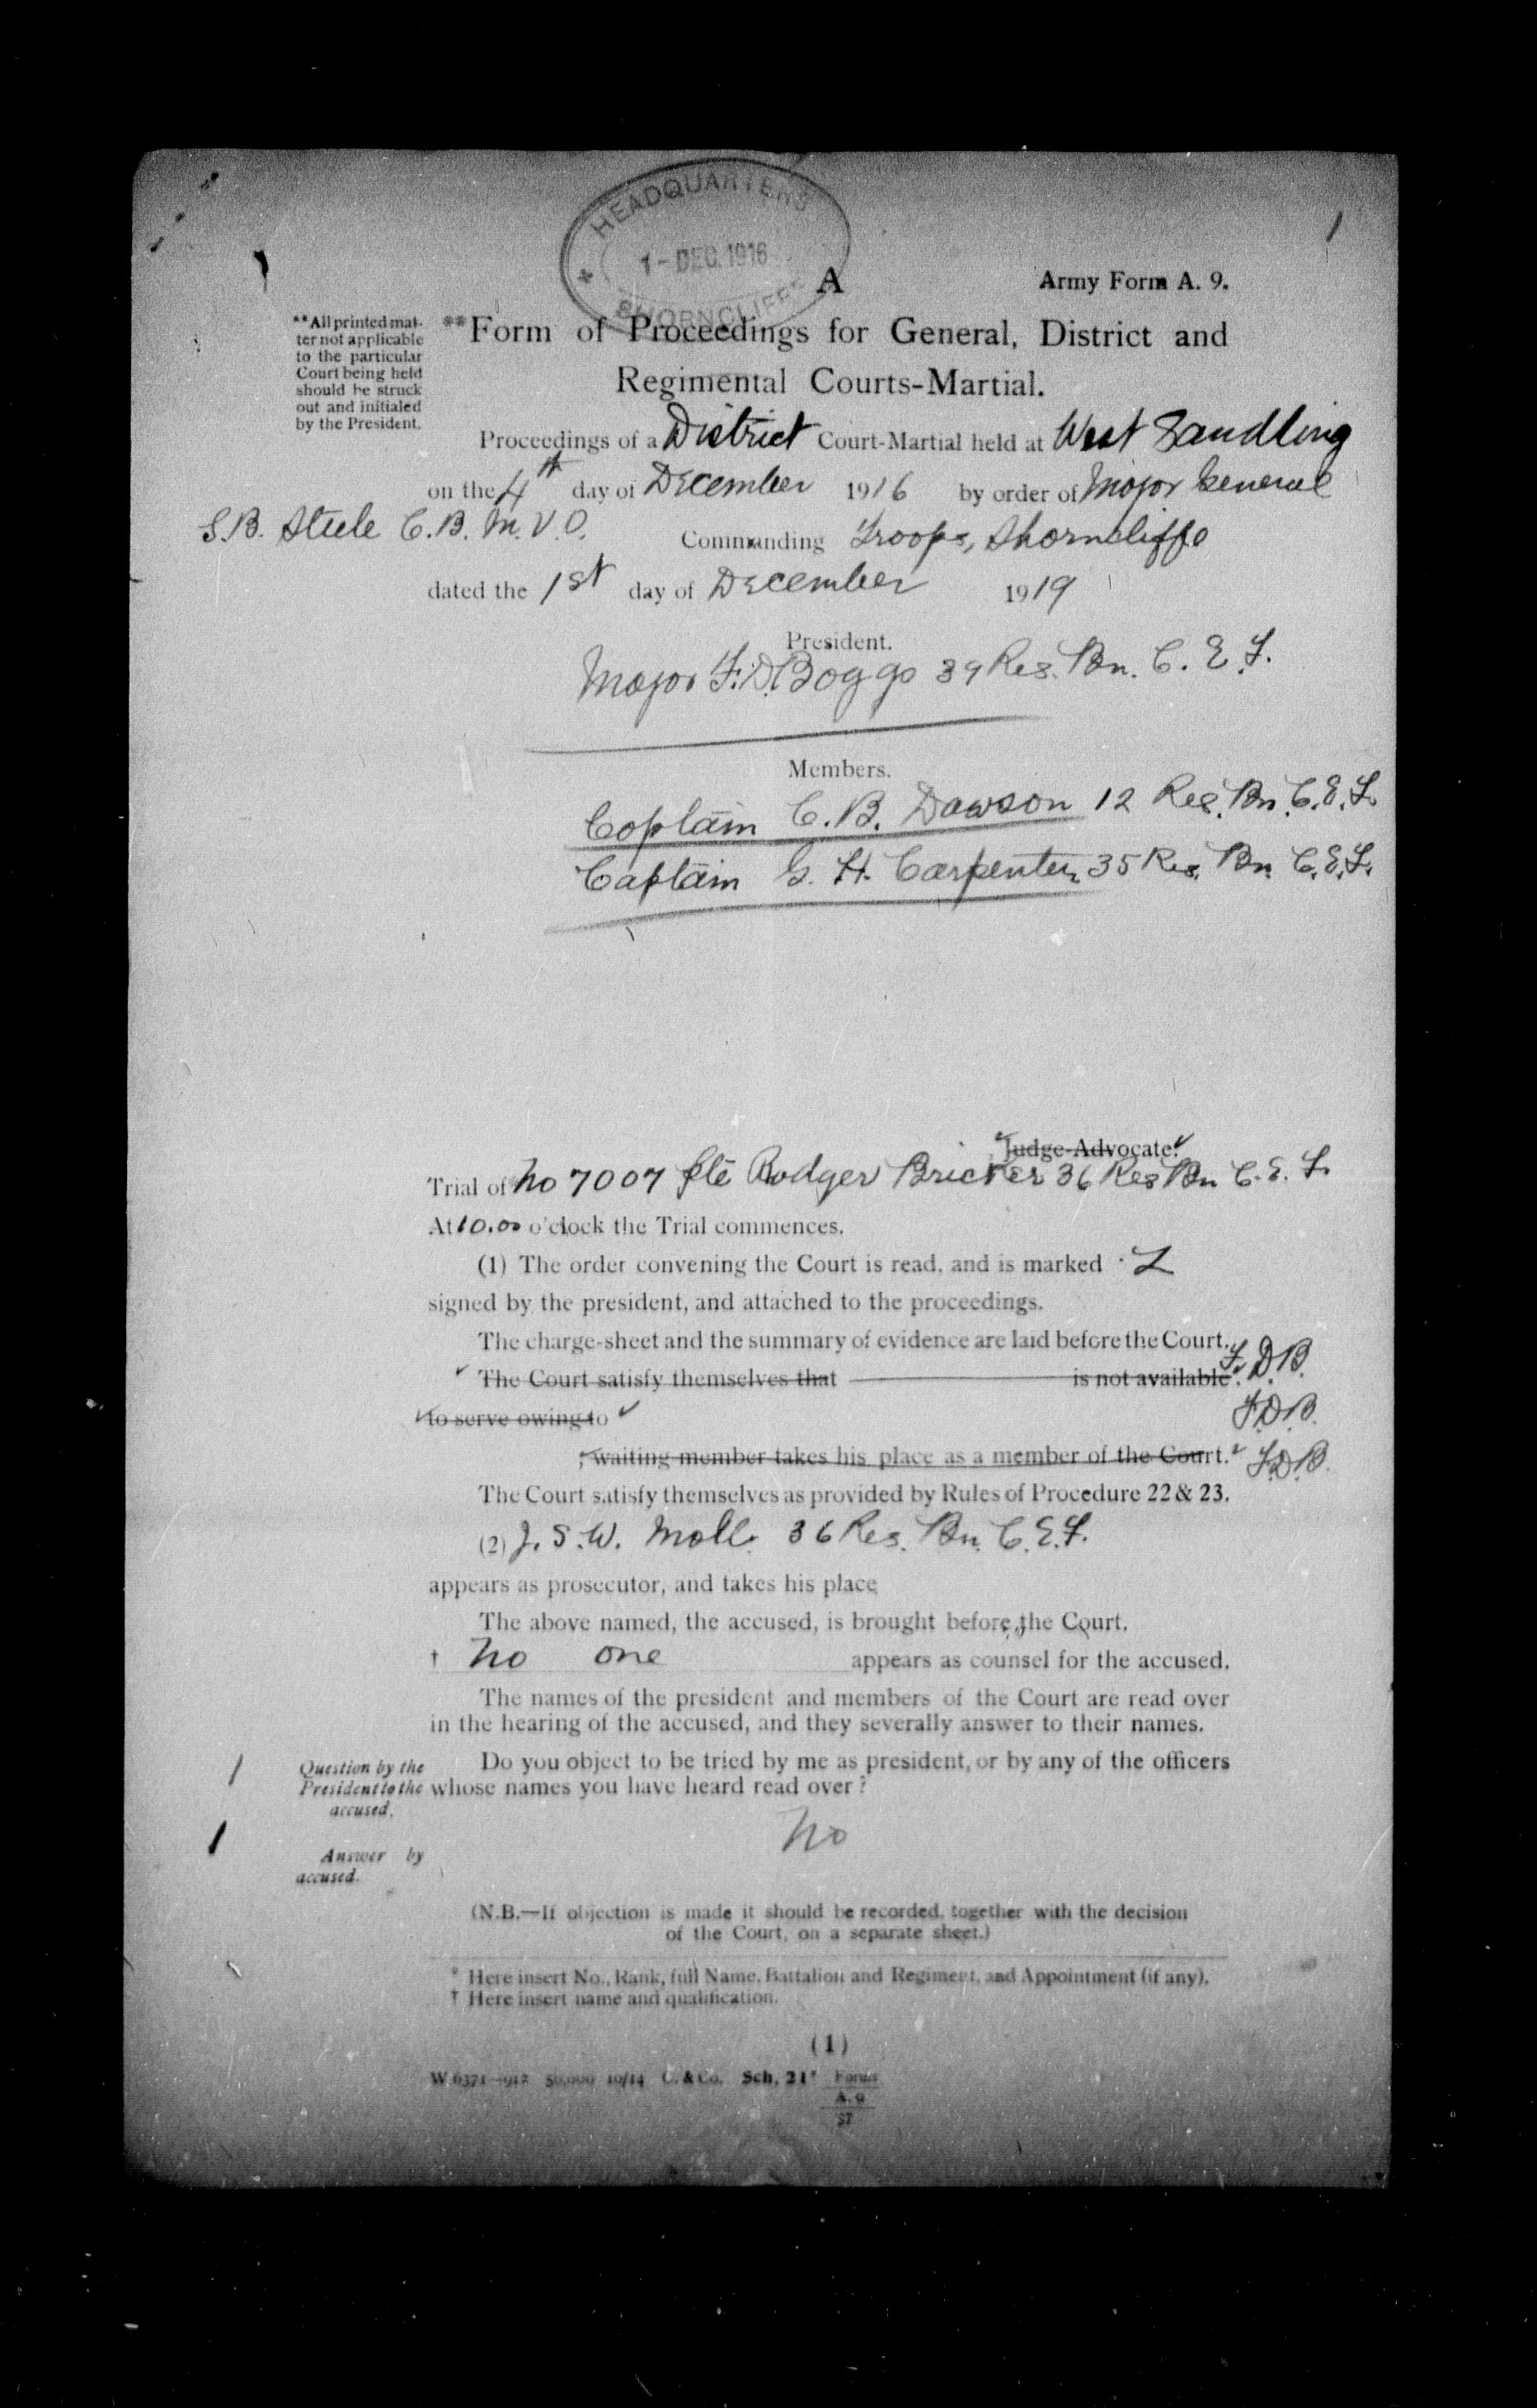 HEADQUARTERS
1 - DEC. 1916
SHORNCLIFFE
1
A
Army Form A. 9.
**All printed mat-
ter not applicable
to the particular
Court being held
should be struck
out and initialed
by the President.
**Form of Proceedings for General, District and
Regimental Courts-Martial.
Proceedings of a District Court-Martial held at West Sandling
on the 4th day of December 1916 by order of Major General
S.B. Steele C.B. M.V.O. Commanding Troops, Shorncliffe
dated the 1st day of December 1919
President.
Major F.D. Boggs 39 Res. Bn. C.E.F.
Members.
Captain C.B. Dawson 12 Res. Bn. C.E.F.
Captain G.H. Carpenter 35 Res. Bn C.E.F.
Judge-Advocate.
Trial of No 7007 Pte Rodger Bricker 36 Res Bn C.E.F.
At 10.00 o'clock the Trial commences.
(1) The order convening the Court is read, and is marked Z
signed by the president, and attached to the proceedings.
The charge-sheet and the summary of evidence are laid before the Court.
The Court satisfy themselves that is not available F.D.B.
to serve owing to F.D.B.
; waiting member takes his place as a member of the Court. F.D.B.
The Court satisfy themselves as provided by Rules of Procedure 22 & 23.
(2) J.S.W. Moll 36 Res. Bn. C.E.F.
appears as prosecutor, and takes his place
The above named, the accused, is brought before the Court.
† No one appears as counsel for the accused.
The names of the president and members of the Court are read over
in the hearing of the accused, and they severally answer to their names.
Question by the
President to the
accused.
Do you object to be tried by me as president, or by any of the officers
whose names you have heard read over?
No
Answer by
accused.
(N.B.—If objection is made it should be recorded, together with the decision
of the Court, on a separate sheet.)
* Here insert No., Rank, full Name, Battalion and Regiment, and Appointment (if any).
† Here insert name and qualification.
(1)
W 6371—912 50,000 10/14 C. & Co. Sch. 21* Forms
A. 9
37